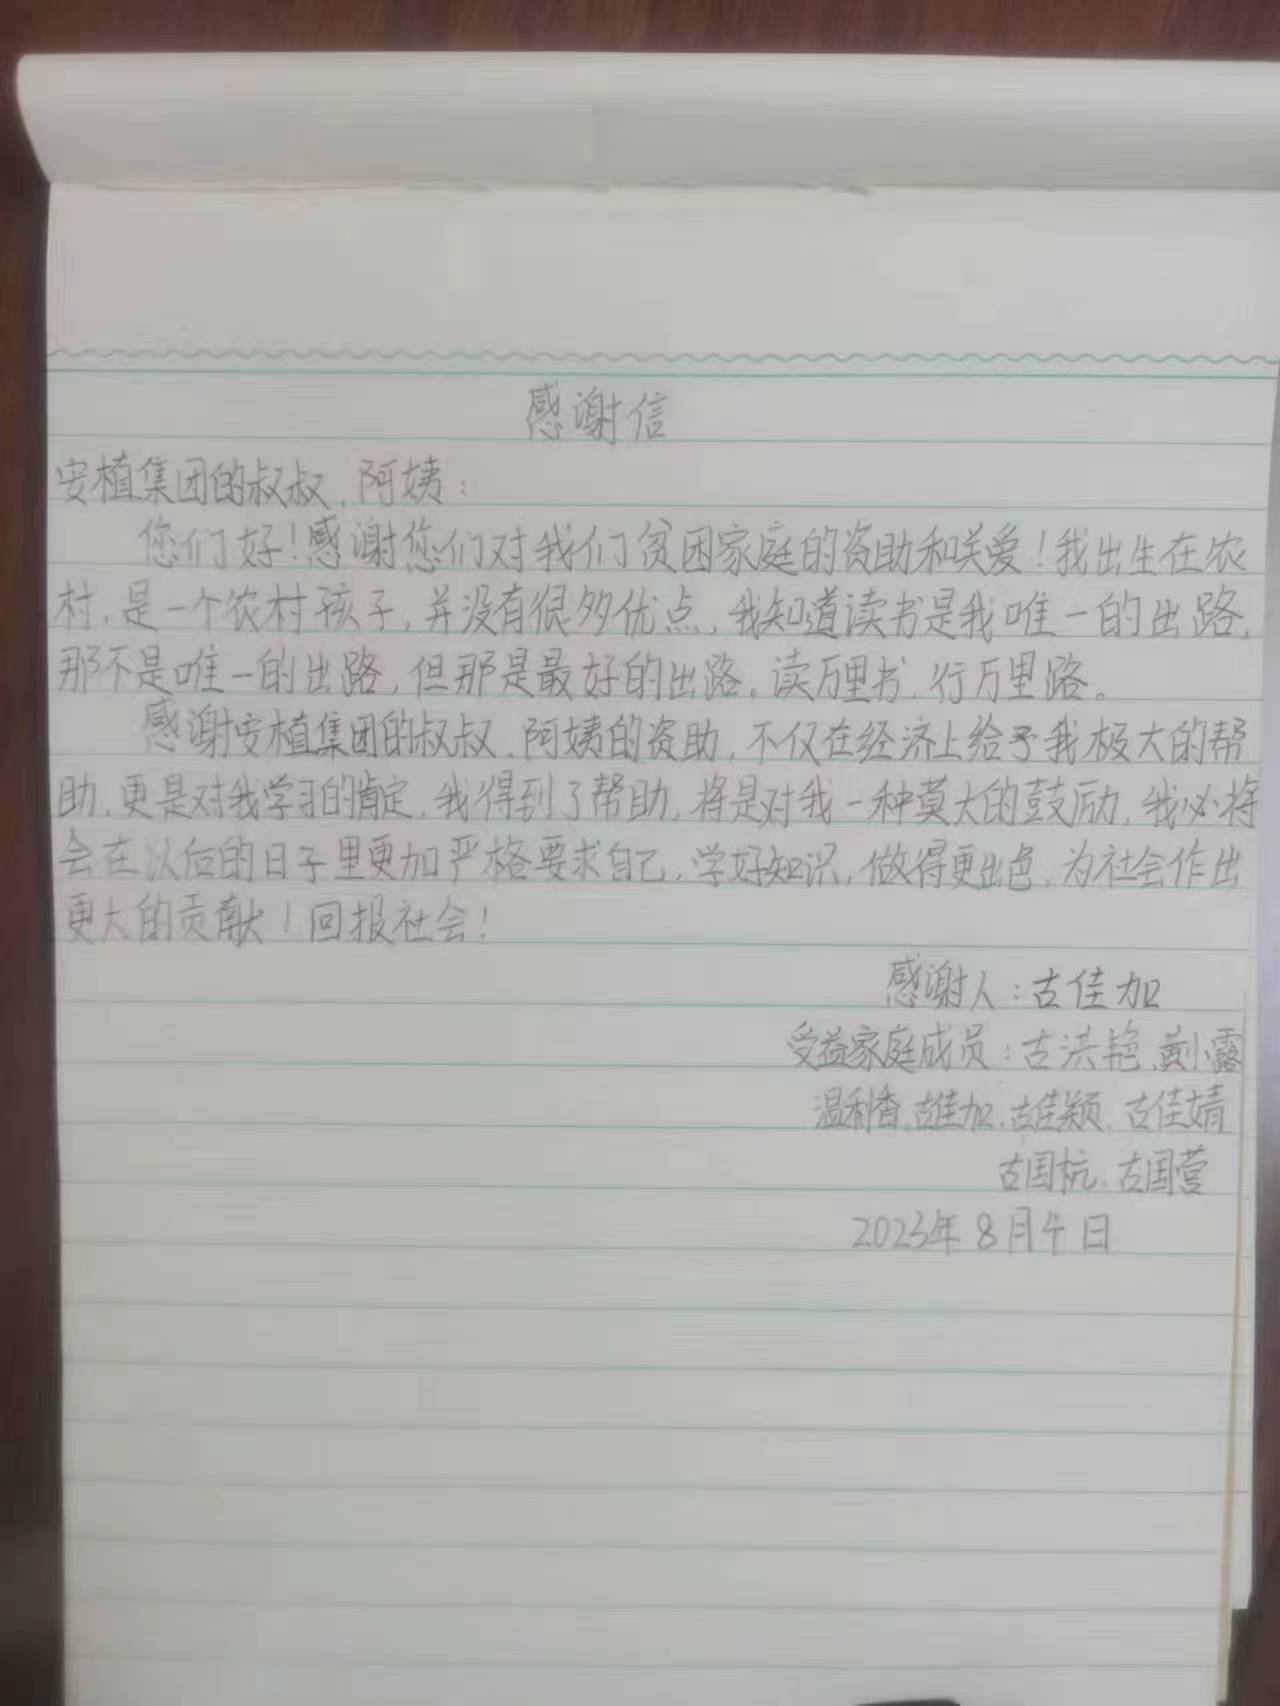 感谢信
安植集团的叔叔、阿姨：
您们好！感谢您们对我们贫困家庭的资助和关爱！我出生在农
村，是一个农村孩子，并没有很多优点，我知道读书是我唯一的出路，
那不是唯一的出路，但那是最好的出路。读万里书，行万里路。
感谢安植集团的叔叔、阿姨的资助，不仅在经济上给予我极大的帮
助，更是对我学习的肯定，我得到了帮助，将是对我一种莫大的鼓励，我必将
会在以后的日子里更加严格要求自己，学好知识，做得更出色，为社会作出
更大的贡献！回报社会！
感谢人：古佳加
受益家庭成员：古洪艳、黄小露
温利香、古佳加、古佳颖、古佳婧
古国杭、古国营
2023年8月4日